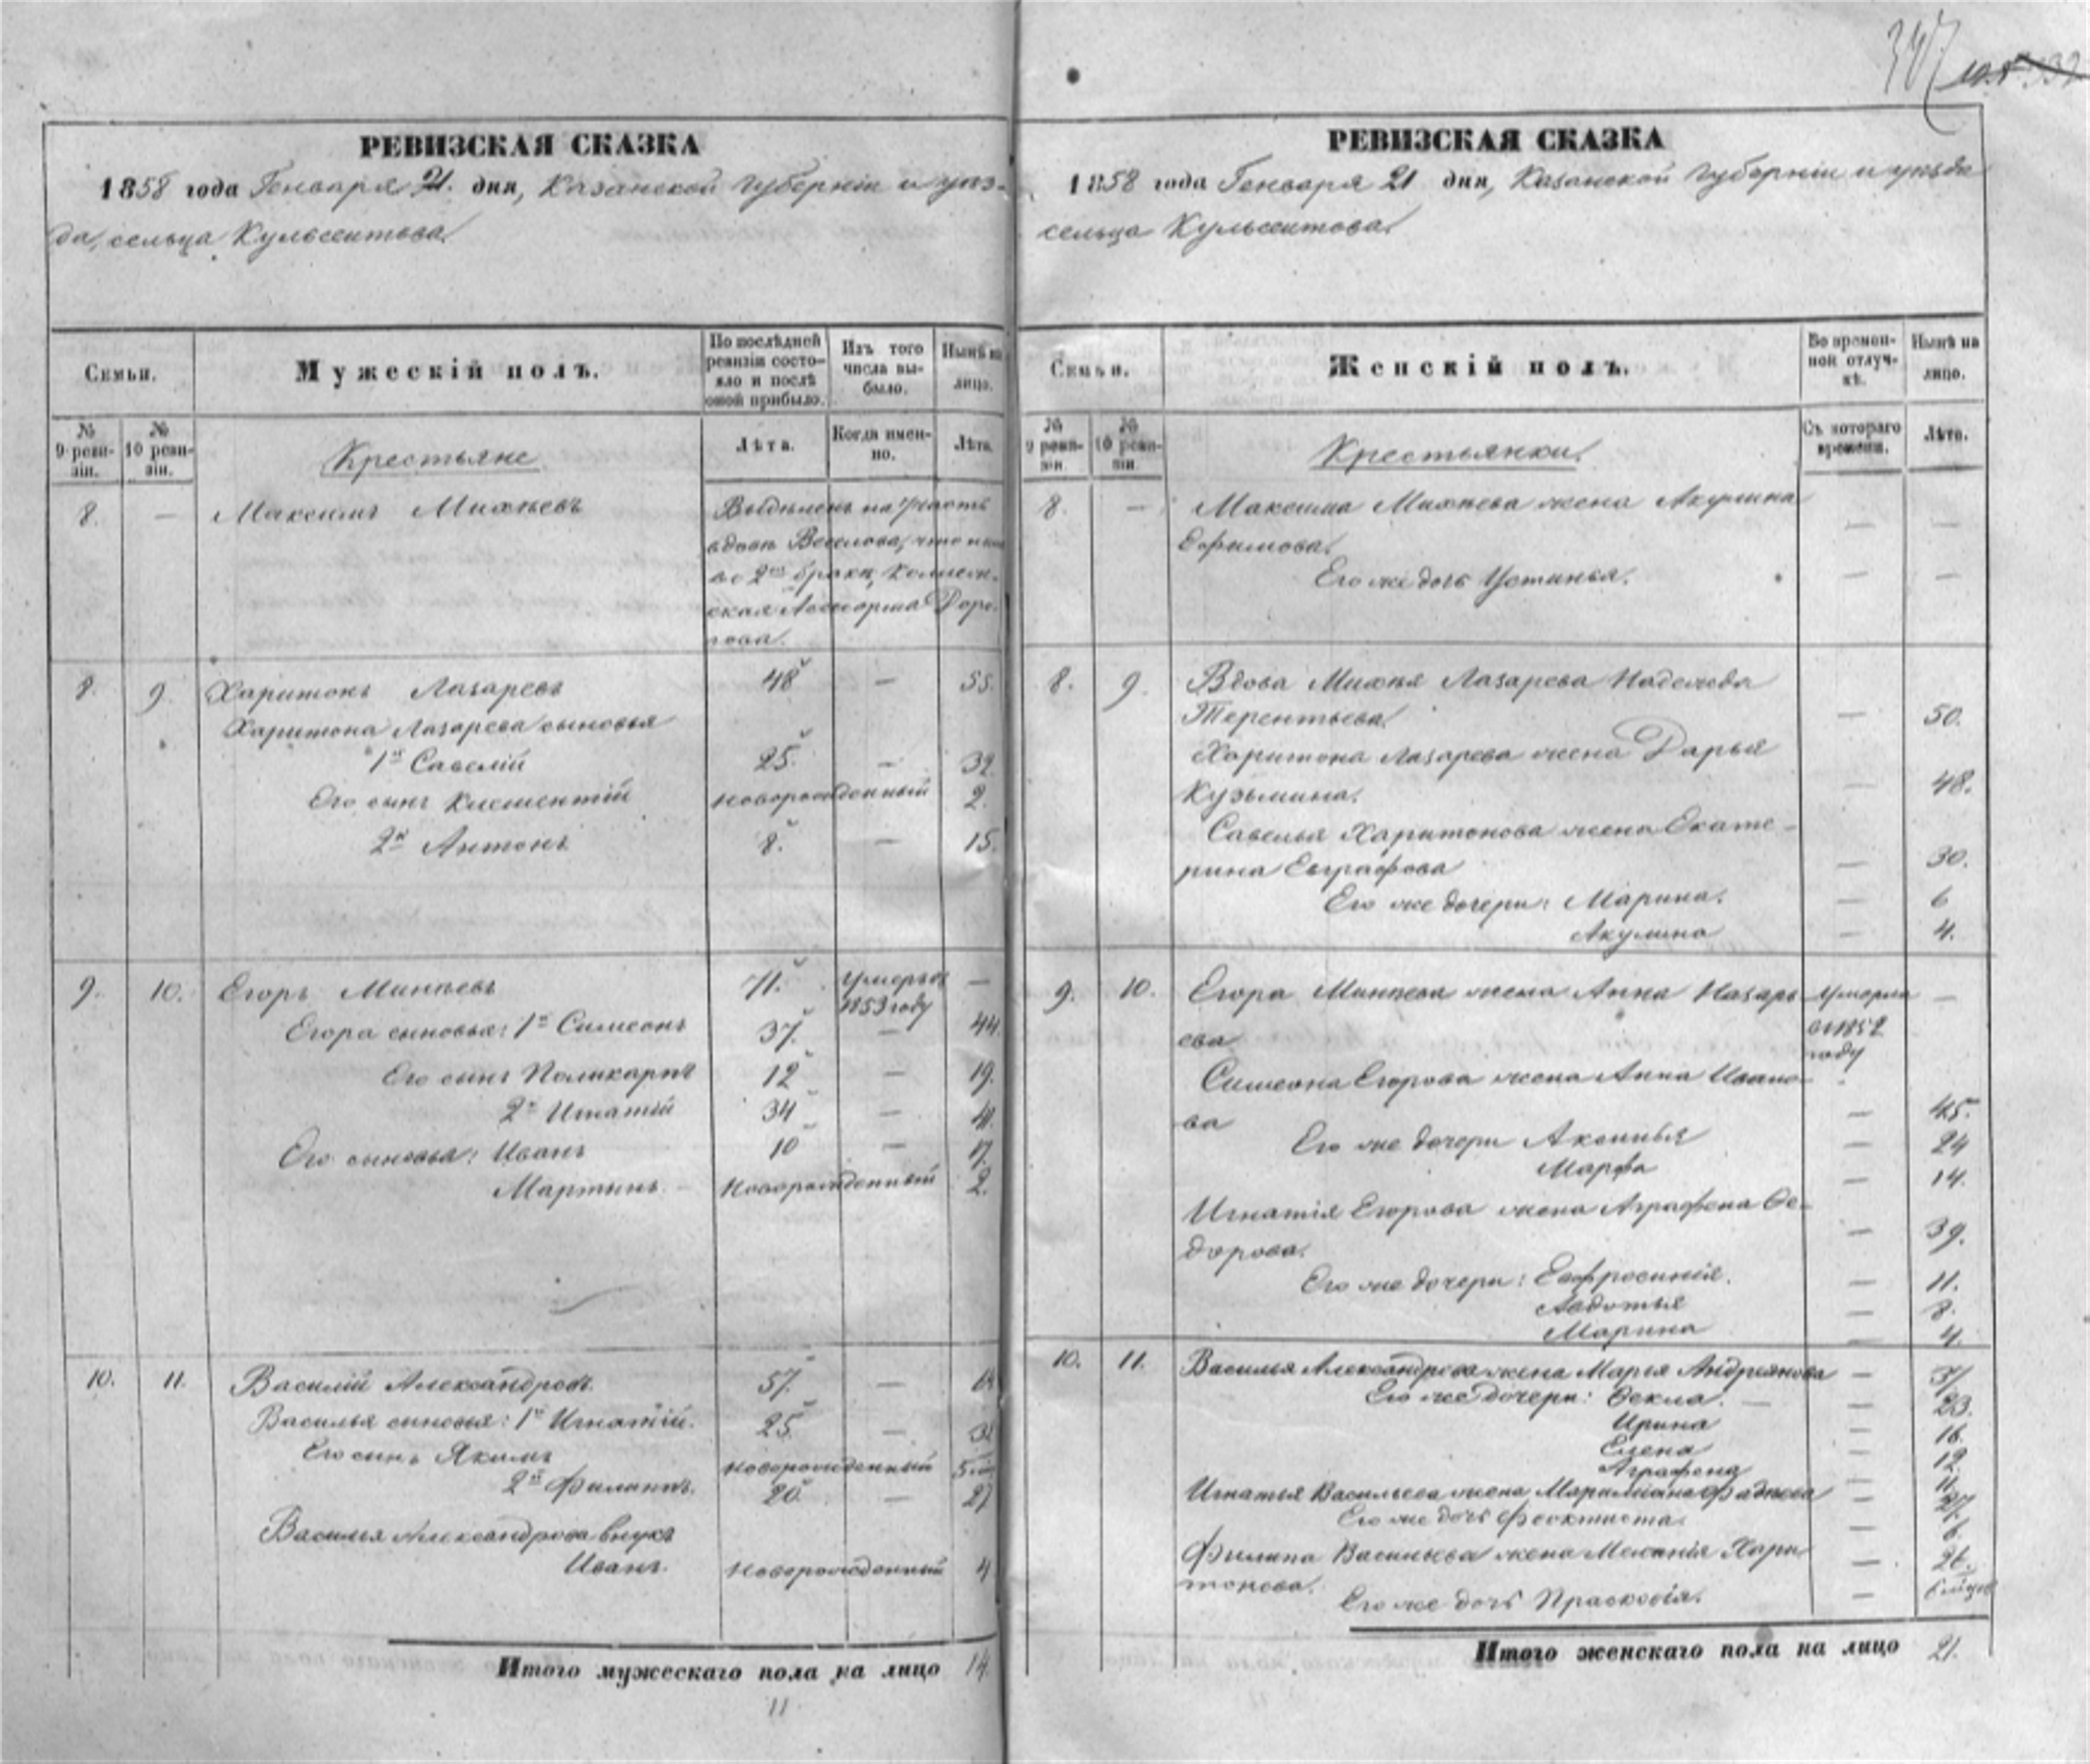 347
РЕВИЗСКАЯ СКАЗКА
1858 года Генваря 21. дня, Казанской губерніи и уѣз-
да, сельца Кульсеитова
Семьи.
Мужескій полъ.
По послѣдней ревизіи состо-
яло и послѣ оной прибыло.
Изъ того числа вы-
было.
Нынѣ на лицо.
№ 9 реви-
зіи.
№ 10 реви-
зіи.
Крестьяне
Лѣта.
Когда имен-
но.
Лѣта.
8. — Максимъ Михѣевъ Выдѣленъ на часть
вдовѣ Веселова, что нынѣ
во 2мъ бракѣ, Коллеж-
ская Ассесорша
8. 9. Харитонъ Лазаревъ 48 — 55.
Харитона Лазарева сыновья
1й Савелій 25. — 32
Его сынъ Климентій новорожденный 2.
2й Антонъ 8. — 15.
9. 10. Егоръ Минѣевъ 71. Умеръ въ —
1853 году
Егора сыновья: 1й Симеонъ 37. — 44
Его сынъ Поликарпъ 12 — 19.
2й Игнатій 34 — 41.
Его сыновья: Иванъ 10 — 17.
Мартынъ. — Новорожденный 2.
10. 11. Василій Александровъ. 57. —
Василья сыновья: 1й Игнатій. 25. — 32
Его сынъ Якимъ новорожденный
2й Филиппъ. 20. — 27
Василья Александрова внукъ
Иванъ. Новорожденный 4
Итого мужескаго пола на лицо 14.
11
РЕВИЗСКАЯ СКАЗКА
1858 года Генваря 21 дня, Казанской губерніи и уѣзда
сельца Кульсеитова.
Семьи.
Женскій полъ.
Во времен-
ной отлуч-
кѣ.
Нынѣ на лицо.
№ 9 реви-
зіи.
№ 10 реви-
зіи.
Крестьянки.
Съ котораго времени.
Лѣта.
8. — Максима Михѣева жена Акулина
Ефимова. — —
Его же дочь Устинья. — —
8. 9. Вдова Михѣя Лазарева Надежда
Терентьева. — 50.
Харитона Лазарева жена Дарья
Кузьмина. — 48.
Савелья Харитонова жена Екате-
рина Евграфова — 30.
Его же дочери: Марина. — 6
Акулина — 4.
9. 10. Егора Минѣева жена Анна Назарь- Умерла —
ева въ 1852
году
Симеона Егорова жена Анна Ивано-
ва — 45.
Его же дочери Аксинья — 24
Марфа — 14.
Игнатія Егорова жена Аграфена Ѳе-
дорова. — 39.
Его же дочери: Евфросинія. — 11.
Авдотья — 8.
Марина — 4.
10. 11. Василья Александрова жена Марья Андреянова — 37
Его же дочери: Ѳекла. — — 23.
Ирина — 16.
Елена — 12.
Аграфена — 11.
Игнатья Васильева жена Фадѣева — 27.
Его же дочь Феоктиста. — 6.
Филипа Васильева жена Меланія Хари-
тонова. — 26.
Его же дочь Прасковія. —
Итого женскаго пола на лицо 21.